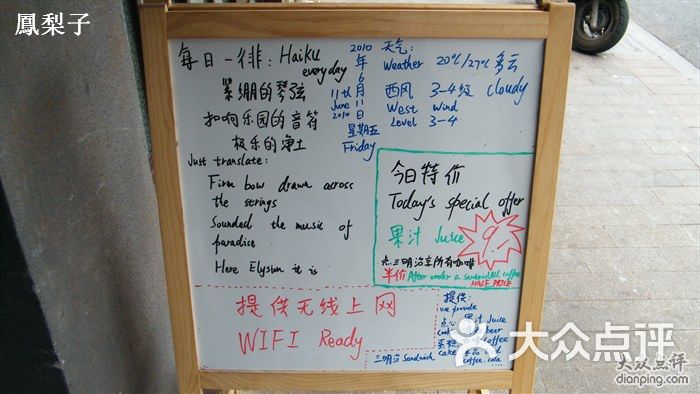 鳳梨子
每日一徘: Haiku
everyday
紧绷的琴弦
扣响乐园的音符
极乐的净土
Just translate:
Firm bow drawn across
the strings
Sounded the music of
paradise
Here Elysium it is
2010
年
6
11th 月
June 11
2010 日
星期五
Friday
天气:
Weather 20℃/27℃ 多云
西风 3-4级 cloudy
West Wind
Level 3-4
今日特价
Today's special offer
果汁 Juice
9.-
点三明治享所有咖啡
半价 After order a sandwich all coffee
HALF PRICE
提供无线上网
WIFI Ready
提供:
we provide
果汁 Juice
beer
coffee
cake
coffee.cola
三明治 Sandwich
大众点评
大众点评
dianping.com